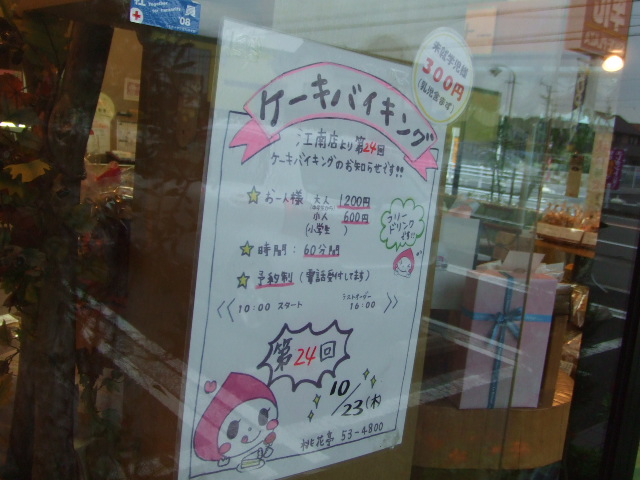 員
Together
for humanity
'08
未就学児様
300円
(乳児含まず)
ケーキバイキング
江南店より第24回
ケーキバイキングのお知らせです!!
お一人様 大人 1200円
小人 600円
(小学生 )
フリー
ドリンク
です!!
時間：60分間
予約制（電話受付してます）
《 10:00 スタート ラストオーダー 16:00 》
第24回
10/23(木)
桃花亭 53-4800